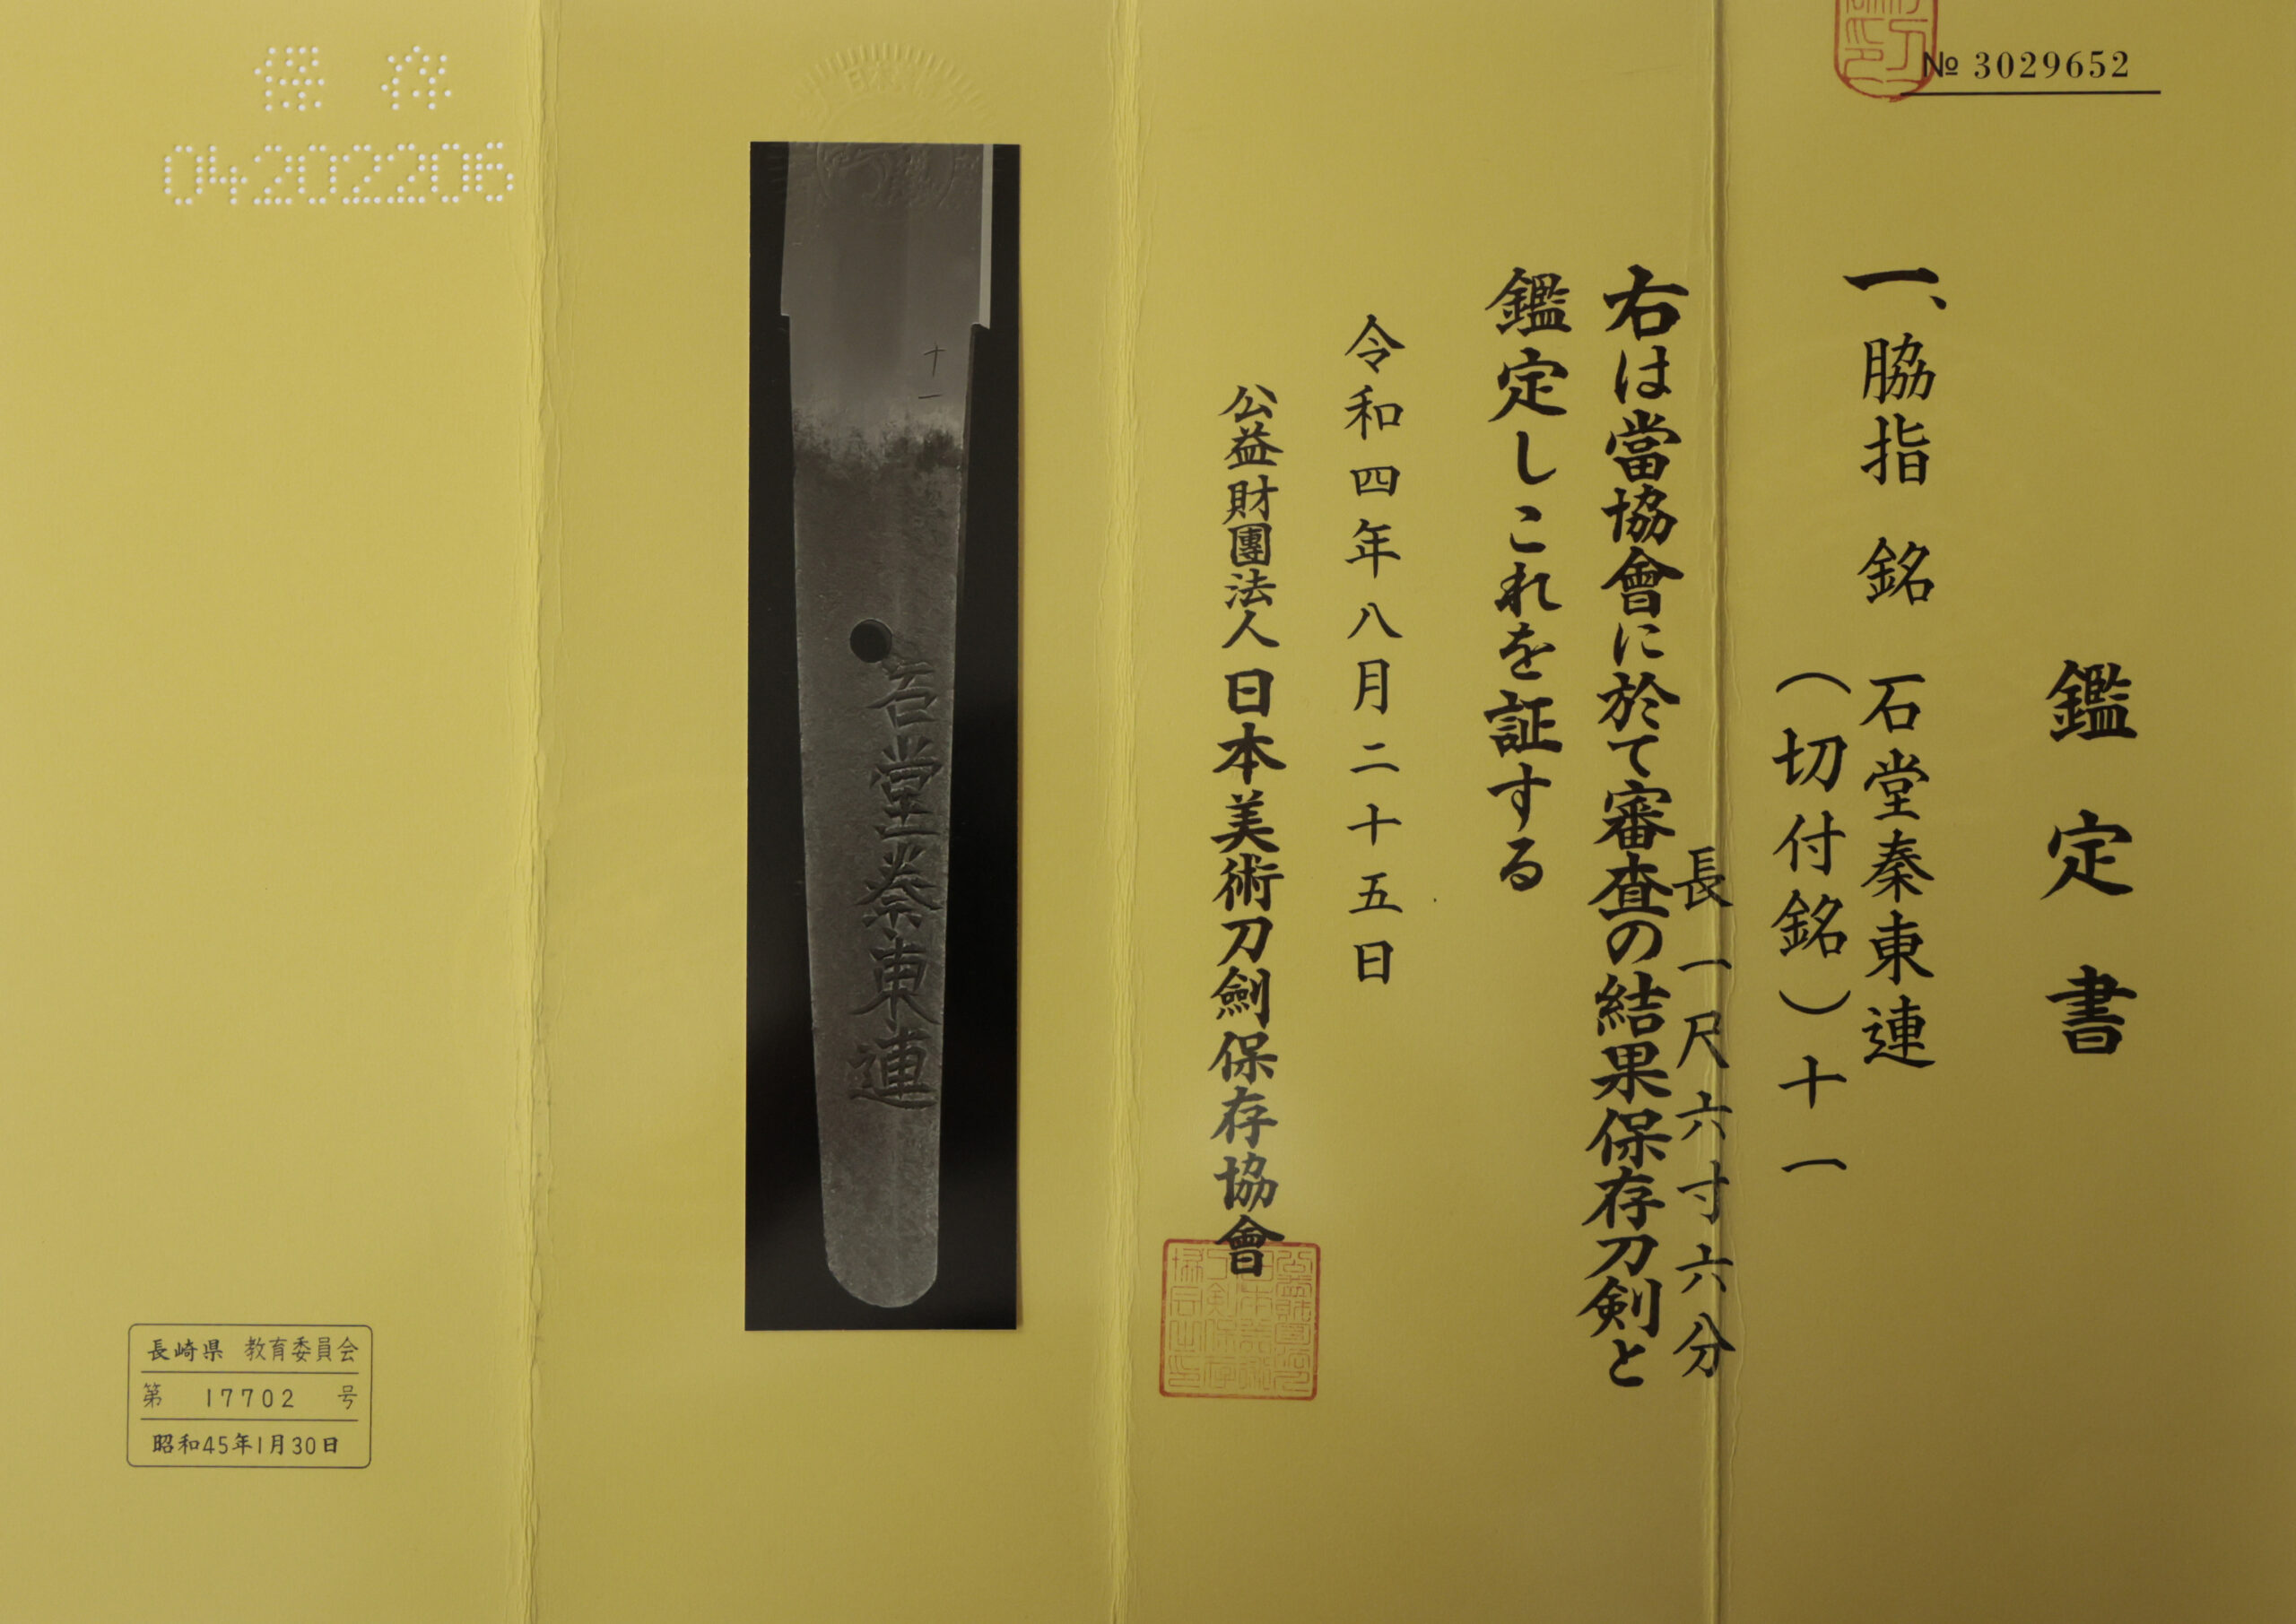 № 3029652
鑑定書
一、脇指 銘 石堂秦東連
(切付銘)十一
長一尺六寸六分
右は當協會に於て審査の結果保存刀剣と
鑑定しこれを証する
令和四年八月二十五日
公益財團法人 日本美術刀劍保存協會
十一
石堂秦東連
保存
04202206
長崎県 教育委員会
第 17702 号
昭和45年1月30日